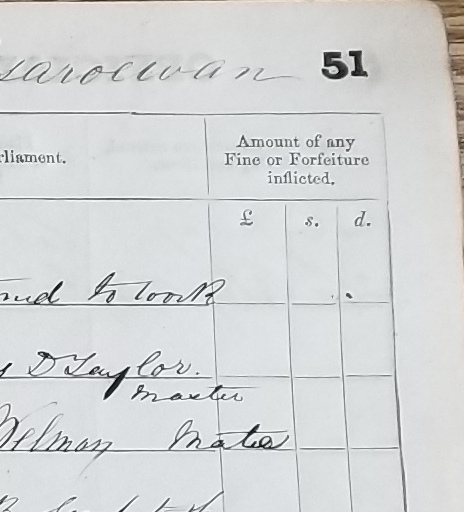 51
rliament.
Amount of any
Fine or Forfeiture
inflicted.
£ s. d.
to work
D Taylor.
Master
Welman Mate